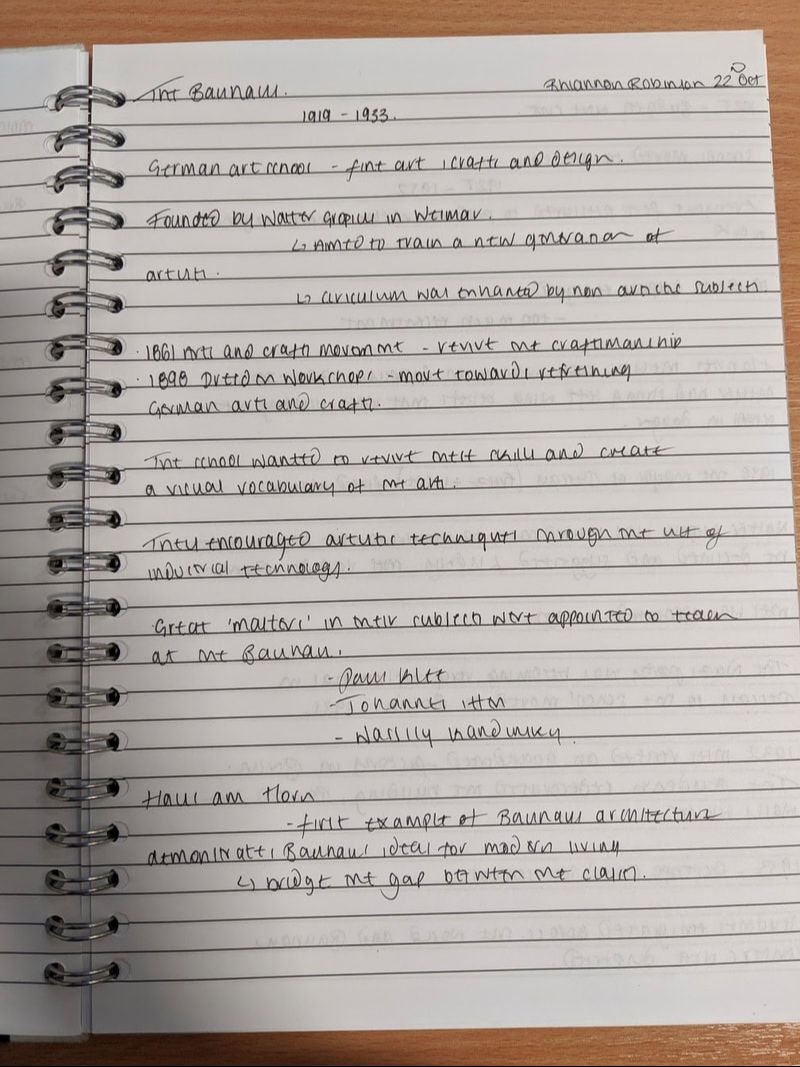 The Bauhaus.
Rhiannon Robinson 22nd Oct
1919 - 1933.
German art school - fine art, crafts and design.
Founded by Walter Gropius in Weimar.
↳ Aimed to train a new generation of
artists.
↳ ciriculum was enhanced by non artistic subjects.
· 1861 Arts and crafts movement - revive the craftmanship
· 1898 Dresden Workshops - move towards refreining
German arts and crafts.
The school wanted to revive these skills and create
a visual vocabulary of the arts.
They encouraged artistic techniques through the use of
industrial technology.
Great 'masters' in their subjects were appointed to teach
at the Bauhau.
- Paul Klee
- Johannes itten
- Wassily Kandinsky.
Haus am Horn
- first example of Bauhaus architecture
demonstrates Bauhaus ideas for modern living
↳ bridge the gap between the classes.